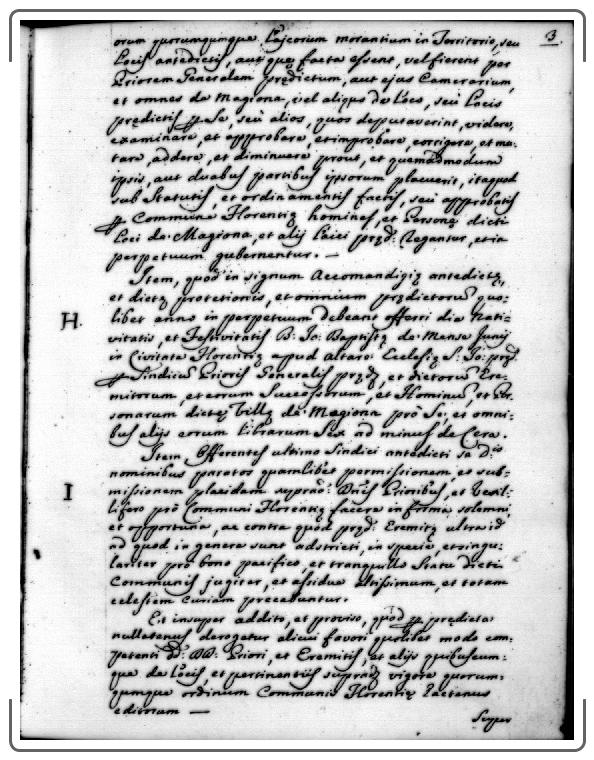 3
orum quorumqumque Laicorum morantium in Territorio, seu
Locis antedictis, aut quę facta essent, vel fierent per
Priorem Generalem prędictum, aut ejus Camerarium,
et omnes de Magiona, vel aliquos de Loco, seu Locis
prędictis se, seu alios, quos deputaverint, videre,
examinare, et approbare, et improbare, corrigere, et mu-
tare, addere, et diminuere prout, et quemadmodum
ipsis, aut duabus partibus ipsorum placuerit, itaquod
sub Statutis, et ordinamentis factis, seu approbatis
Commune Florentię homines, et Personę dicti
Loci de Magiona, et alij Laici pręd: Regantur, et in
perpetuum gubernentur. —
Item, quod in signum Accomandigię antedictę,
et dictę protetionis, et omnium prędictorum quo-
libet anno in perpetuum debeant offerri die Nati-
H.
vitatis, et Festivitatis B: Jo: Baptistę de Mense Junij
in Civitate Florentię apud Altare Ecclesię S: Jo: pręd:
Sindicum Prioris Generalis pręd: et dictorum Ere-
mitorum, et eorum Successorum, et Hominum, et Per-
sonarum dictę Villę de Magiona prò Se, et omni-
bus alijs eorum librarum Sex ad minus de Cera.
Item Offerentes ultimo Sindici antedicti se d:is
nominibus paratos quamlibet permissionem, et sub-
I
missionem placidam supradi: Dnis Prioribus, et Vexil-
lifero prò Communi Florentię facere in forma solemni,
et opportuna, ac contra quod pręd: Eremitę ultra id
ad quod in genere sunt adstricti, in specie, et singu-
lariter prò bono pacifico, et tranquillo Statu dicti
Communis jugiter, et assidue Altissimum, et totam
celestem Curiam precabuntur.
Et insuper addito, et proviso, quod prędicta
nullatenus derogetur alicui favori quolibet modo com-
petenti DD: Priori, et Eremitis, et alijs quibuscum-
que de Locis, et pertinentijs supradi vigore quorum-
qumque ordinum Communis Florentię hactenus
editorum —
Super